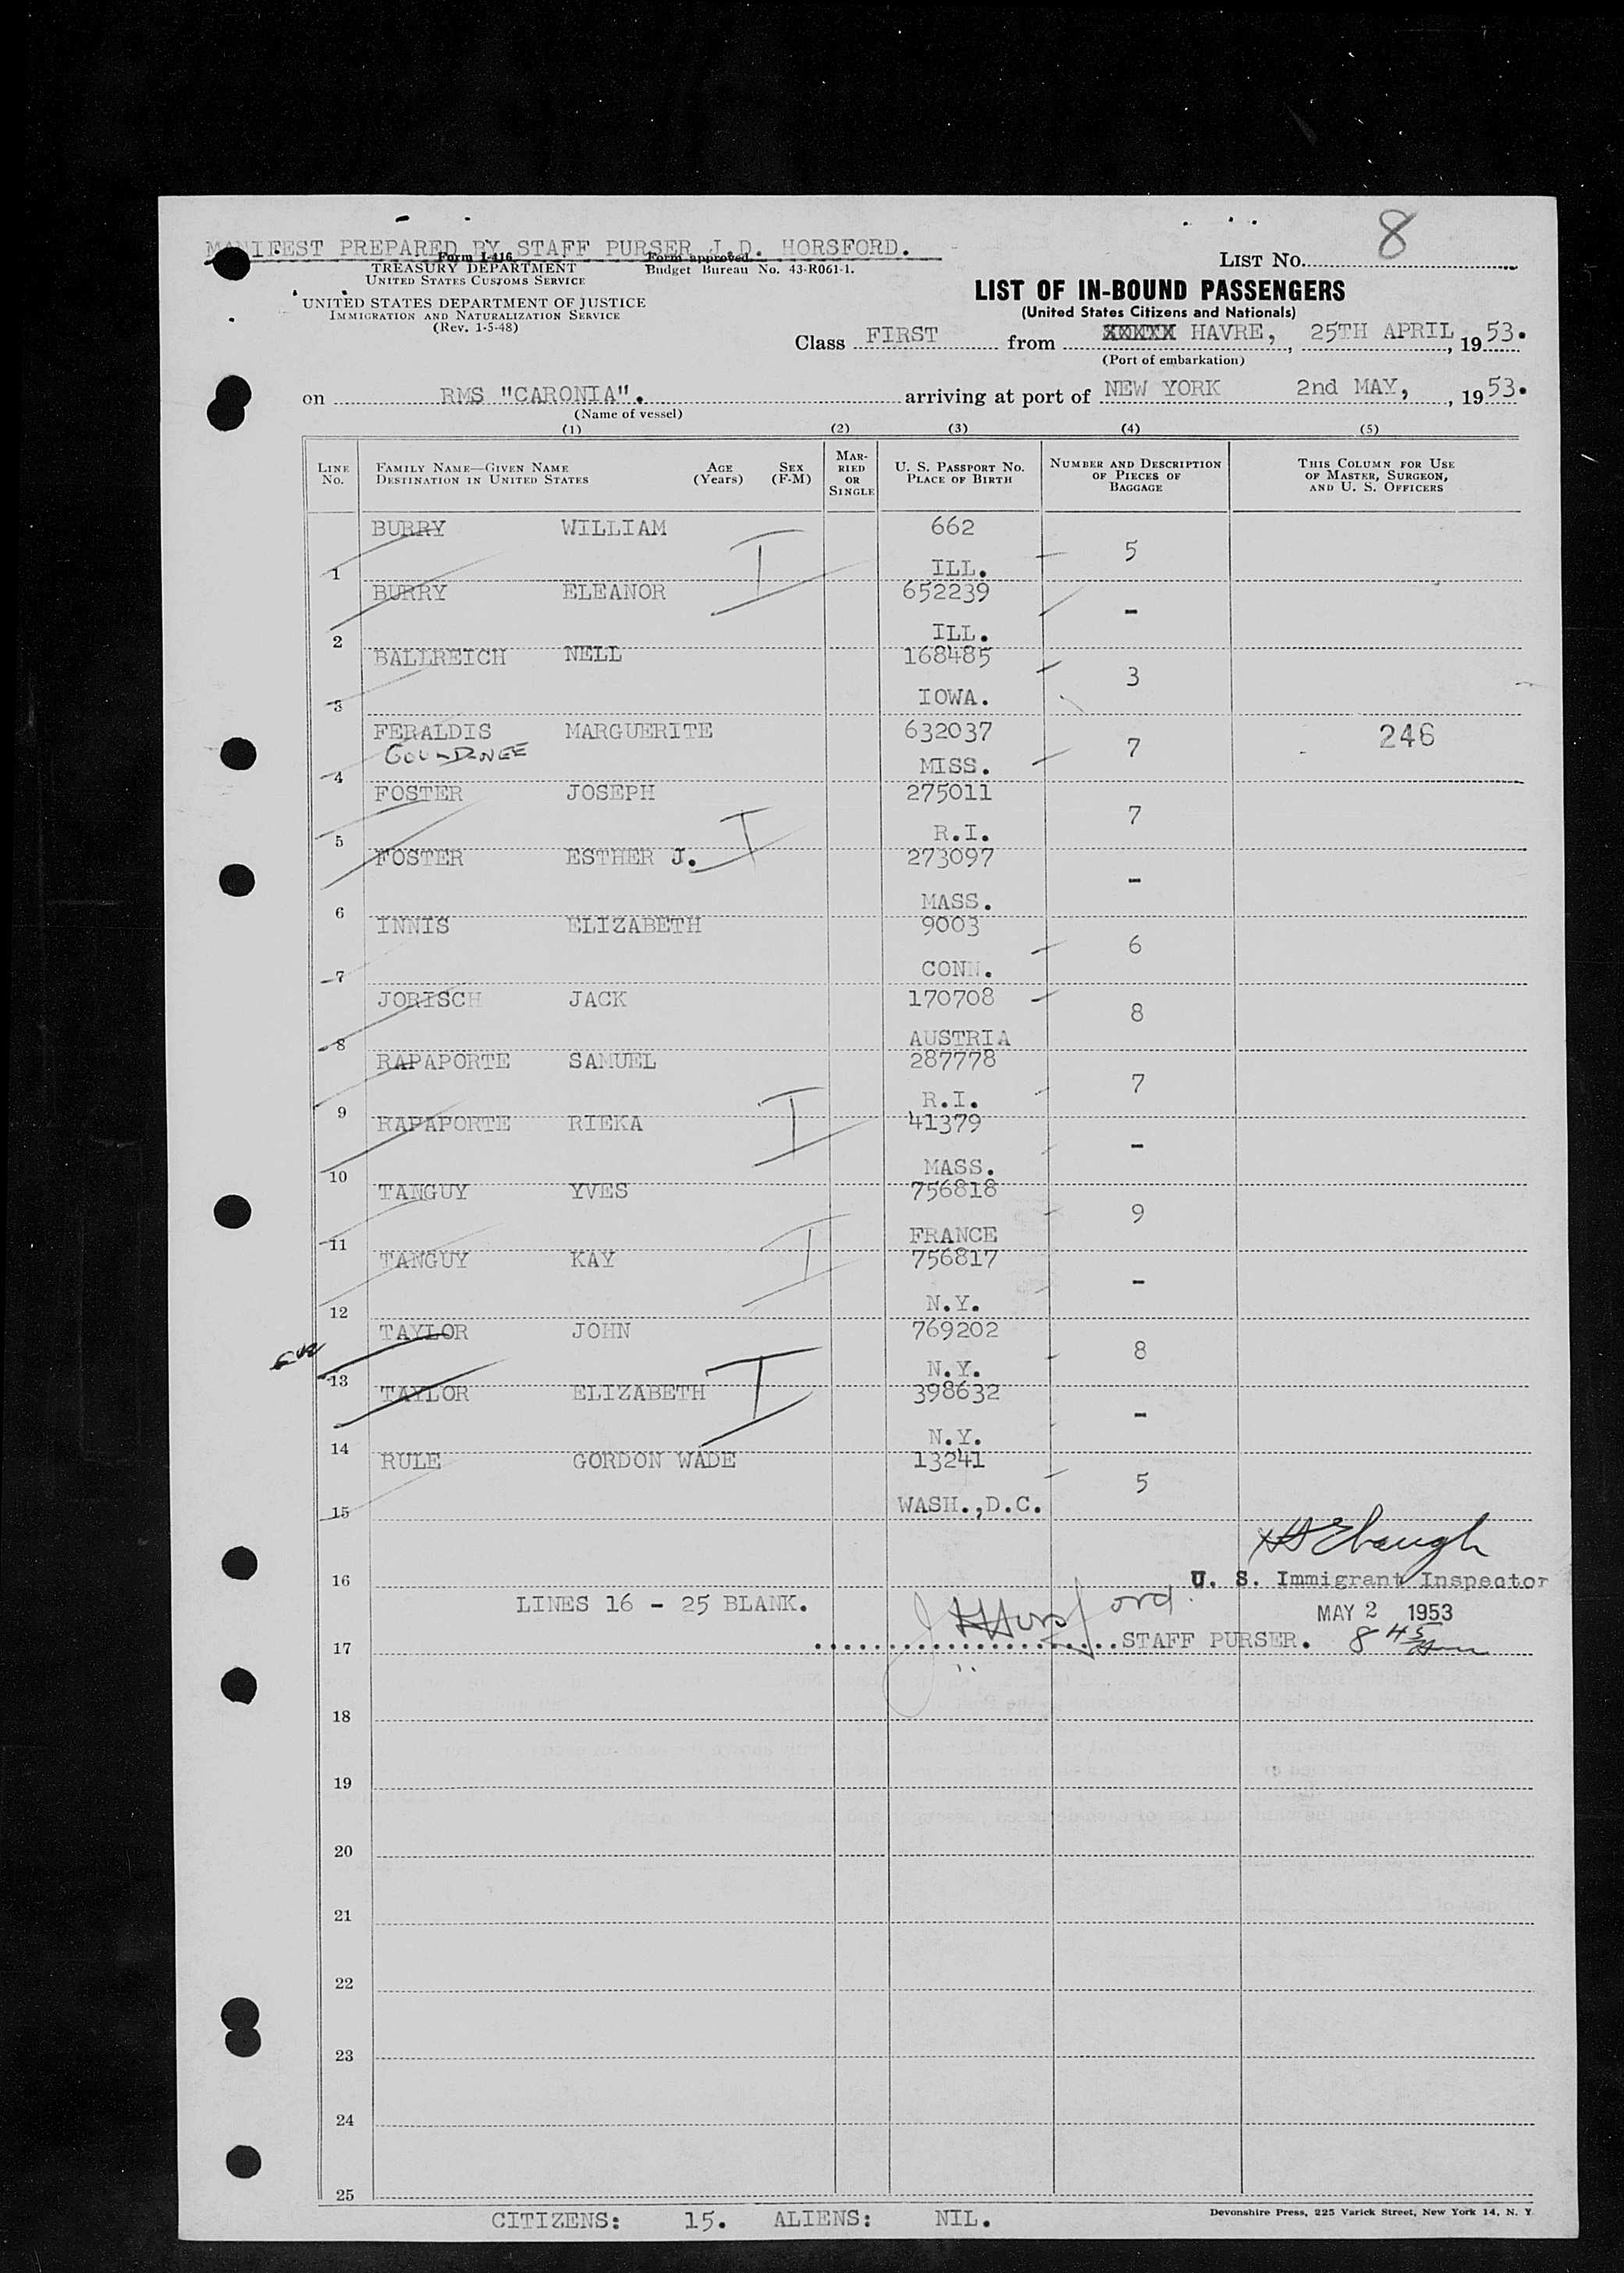 MANIFEST PREPARED BY STAFF PURSER J.D. HORSFORD.
8
Form I-416
TREASURY DEPARTMENT
UNITED STATES CUSTOMS SERVICE
Form approved.
Budget Bureau No. 43-R061-1.
LIST No.
UNITED STATES DEPARTMENT OF JUSTICE
IMMIGRATION AND NATURALIZATION SERVICE
(Rev. 1-5-48)
LIST OF IN-BOUND PASSENGERS
(United States Citizens and Nationals)
Class FIRST from HAVRE, 25TH APRIL, 1953.
(Port of embarkation)
on RMS "CARONIA". arriving at port of NEW YORK 2nd MAY, 1953.
(Name of vessel)
(1) (2) (3) (4) (5)
LINE No. FAMILY NAME—GIVEN NAME DESTINATION IN UNITED STATES AGE (Years) SEX (F-M) MARRIED OR SINGLE U. S. PASSPORT NO. PLACE OF BIRTH NUMBER AND DESCRIPTION OF PIECES OF BAGGAGE THIS COLUMN FOR USE OF MASTER, SURGEON, AND U. S. OFFICERS
BURRY WILLIAM 662
5
1 ILL.
BURRY ELEANOR 652239
-
2 ILL.
BALLREICH NELL 168485
3
3 IOWA.
FERALDIS MARGUERITE 632037 246
7
4 MISS.
FOSTER JOSEPH 275011
7
5 R.I.
FOSTER ESTHER J. 273097
-
6 MASS.
INNIS ELIZABETH 9003
6
7 CONN.
JORISCH JACK 170708
8
8 AUSTRIA
RAPAPORTE SAMUEL 287778
7
9 R.I.
RAPAPORTE RIEKA 41379
-
10 MASS.
TANGUY YVES 756818
9
11 FRANCE
TANGUY KAY 756817
-
12 N.Y.
TAYLOR JOHN 769202
8
13 N.Y.
TAYLOR ELIZABETH 398632
-
14 N.Y.
RULE GORDON WADE 13241
5
15 WASH.,D.C.
16 U. S. Immigrant Inspector
LINES 16 - 25 BLANK. MAY 2 1953
17 STAFF PURSER. 8 45
18
19
20
21
22
23
24
25
CITIZENS: 15. ALIENS: NIL.
Devonshire Press, 225 Varick Street, New York 14, N. Y.